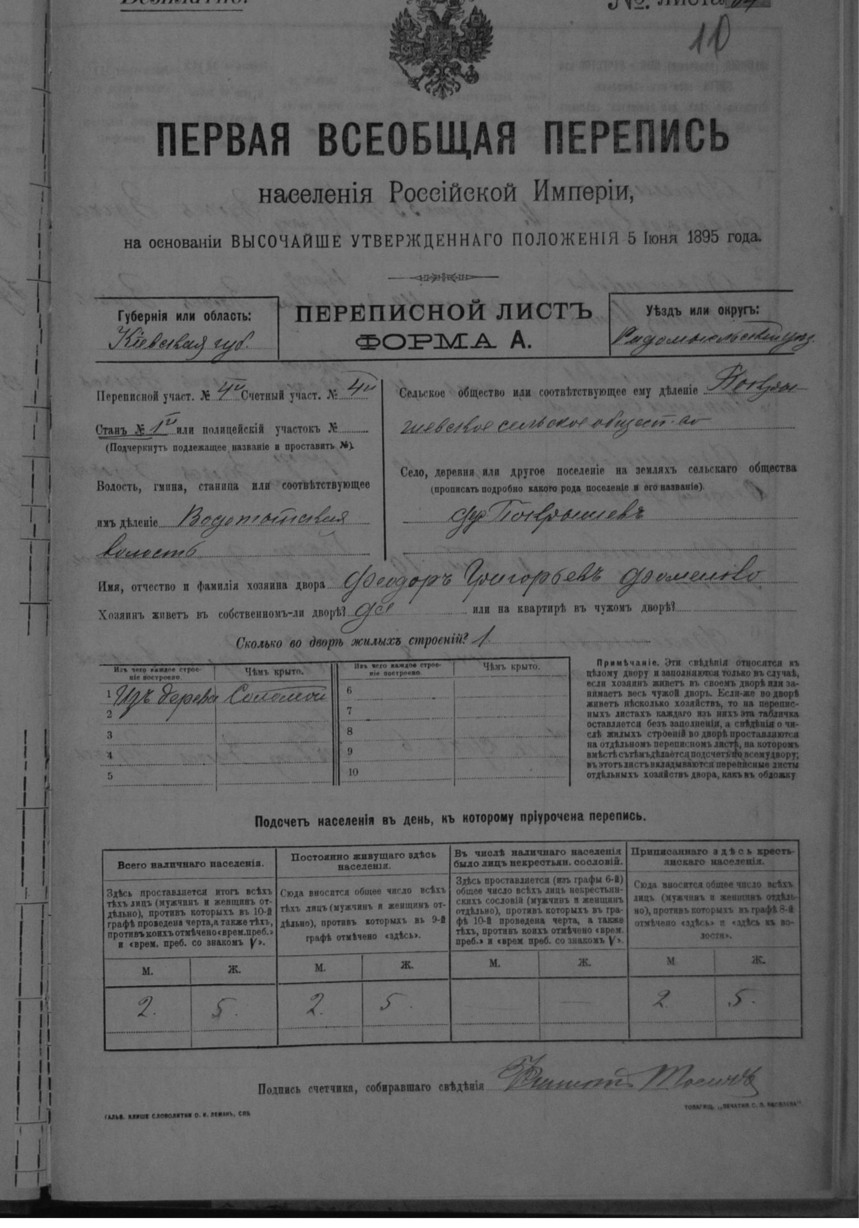 Безплатно.
№. Листа
10
ПЕРВАЯ ВСЕОБЩАЯ ПЕРЕПИСЬ
населенія Россійской Имперіи,
на основаніи ВЫСОЧАЙШЕ УТВЕРЖДЕННАГО ПОЛОЖЕНІЯ 5 Іюня 1895 года.
Губернія или область:
Кіевская губ.
ПЕРЕПИСНОЙ ЛИСТЪ
ФОРМА А.
Уѣздъ или округъ:
Переписной участ. № 4й Счетный участ. № 4й
Станъ № 1й или полицейскій участокъ №
(Подчеркнуть подлежащее названіе и проставить №).
Волость, гмина, станица или соотвѣтствующее
имъ дѣленіе
волость
Сельское общество или соотвѣтствующее ему дѣленіе
сельское
Село, деревня или другое поселеніе на земляхъ сельскаго общества
(прописать подробно какого рода поселеніе и его названіе).
Имя, отчество и фамилія хозяина двора Феодоръ Григорьевъ
Хозяинъ живетъ въ собственномъ-ли дворѣ? да или на квартирѣ въ чужомъ дворѣ?
Сколько во дворѣ жилыхъ строеній? 1
Изъ чего каждое строеніе построено.
Чѣмъ крыто.
Изъ чего каждое строеніе построено.
Чѣмъ крыто.
1 Изъ дерева Соломой
2
3
4
5
6
7
8
9
10
Примѣчаніе. Эти свѣдѣнія относятся къ
цѣлому двору и заполняются только въ случаѣ,
если хозяинъ живетъ въ своемъ дворѣ или за-
нимаетъ весь чужой дворъ. Если-же во дворѣ
живетъ нѣсколько хозяйствъ, то на переписн-
ыхъ листахъ каждаго изъ нихъ эта табличка
оставляется безъ заполненія, а свѣдѣнія о чи-
слѣ жилыхъ строеній во дворѣ проставляются
на отдѣльномъ переписномъ листѣ, на которомъ
вмѣстѣ съ тѣмъ дѣлается подсчетъ по всему двору;
въ этотъ листъ вкладываются переписные листы
отдѣльныхъ хозяйствъ двора, какъ въ обложку.
Подсчетъ населенія въ день, къ которому пріурочена перепись.
Всего наличнаго населенія.
Здѣсь проставляется итогъ всѣхъ
тѣхъ лицъ (мужчинъ и женщинъ от-
дѣльно), противъ которыхъ въ 10-й
графѣ проведена черта, а также тѣхъ,
противъ коихъ отмѣчено «врем. преб.»
и «врем. преб. со знакомъ V».
Постоянно живущаго здѣсь
населенія.
Сюда вносится общее число всѣхъ
тѣхъ лицъ (мужчинъ и женщинъ от-
дѣльно), противъ которыхъ въ 9-й
графѣ отмѣчено «здѣсь».
Въ числѣ наличнаго населенія
было лицъ некрестьян. сословій.
Здѣсь проставляется (изъ графы 6-й)
общее число всѣхъ лицъ некрестьян-
скихъ сословій (мужчинъ и женщинъ
отдѣльно), противъ которыхъ въ гра-
фѣ 10-й проведена черта, а также
тѣхъ, противъ коихъ отмѣчено «врем.
преб.» и «врем. преб. со знакомъ V».
Приписаннаго здѣсь кресть-
янскаго населенія.
Сюда вносится общее число всѣхъ
лицъ (мужчинъ и женщинъ отдѣль-
но), противъ которыхъ въ графѣ 8-й
отмѣчено «здѣсь» и «здѣсь въ во-
лости».
М. Ж. М. Ж. М. Ж. М. Ж.
2. 5. 2. 5. — — 2. 5.
Подпись счетчика, собиравшаго свѣдѣнія
ГАЛЬВ. КЛИШЕ СЛОВОЛИТНИ О. И. ЛЕМАНЪ, СПБ.